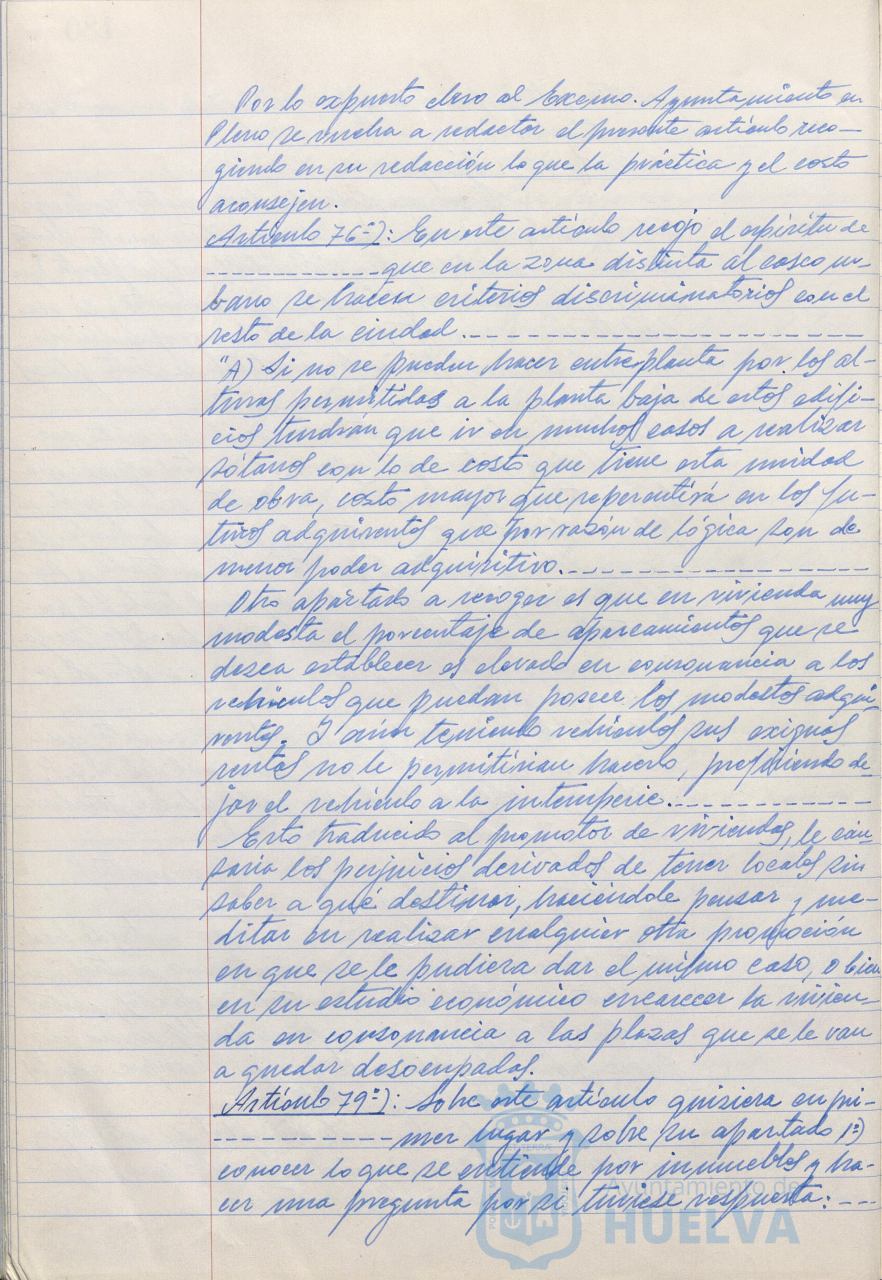 Por lo expuesto elevo al Excmo. Ayuntamiento en
Pleno se vuelva a redactar el presente artículo reco-
giendo en su redacción lo que la práctica y el costo
aconsejen.
Artículo 76º): En este artículo recojo el espíritu de
------------- que en la zona distinta al casco ur-
bano se hacen criterios discriminatorios con el
resto de la ciudad.------------------
"A) Si no se pueden hacer entreplanta por los al-
turas permitidas a la planta baja de estos edifi-
cios tendrán que ir en muchos casos a realizar
sótanos con lo de costo que tiene esta unidad
de obra, costo mayor que repercutirá en los fu-
turos adquirentes que por razón de lógica son de
menor poder adquisitivo.-------------
Otro apartado a recoger es que en vivienda muy
modesta el porcentaje de aparcamientos que se
desea establecer es elevado en consonancia a los
vehículos que puedan poseer los modestos adqui-
rentes. Y aún teniendo vehículos sus exiguas
rentas no le permitirían hacerlo, prefiriendo de-
jar el vehículo a la intemperie.---------
Esto traducido al promotor de viviendas, le cau-
saría los perjuicios derivados de tener locales sin
saber a qué destinar, haciéndole pensar y me-
ditar en realizar cualquier otra promoción
en que se le pudiera dar el mismo caso, o bien
en su estudio económico encarecer la vivien-
da en consonancia a las plazas que se le van
a quedar desocupadas.
Artículo 79º): Sobre este artículo quisiera en pri-
------------- mer lugar y sobre su apartado 1º)
conocer lo que se entiende por inmuebles y ha-
cer una pregunta por si tuviese respuesta: ---
Ayuntamiento de
HUELVA